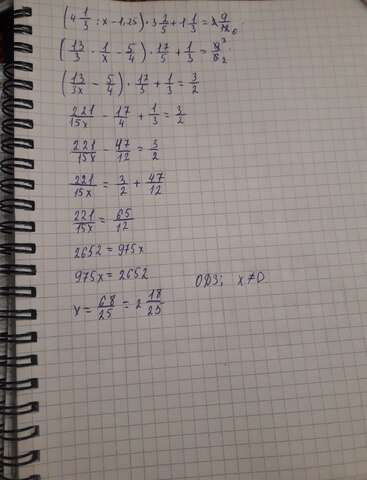 (4 1/3 : x - 1,25) · 3 2/5 + 1 1/3 =
(13/3 · 1/x - 5/4) · 17/5 + 1/3 =
(13/3x - 5/4) · 17/5 + 1/3 = 3/2
221/15x - 17/4 + 1/3 = 3/2
221/15x - 47/12 = 3/2
221/15x = 3/2 + 47/12
221/15x = 65/12
2652 = 975x
975x = 2652 ОДЗ: x≠0
x = 68/25 = 2 18/25